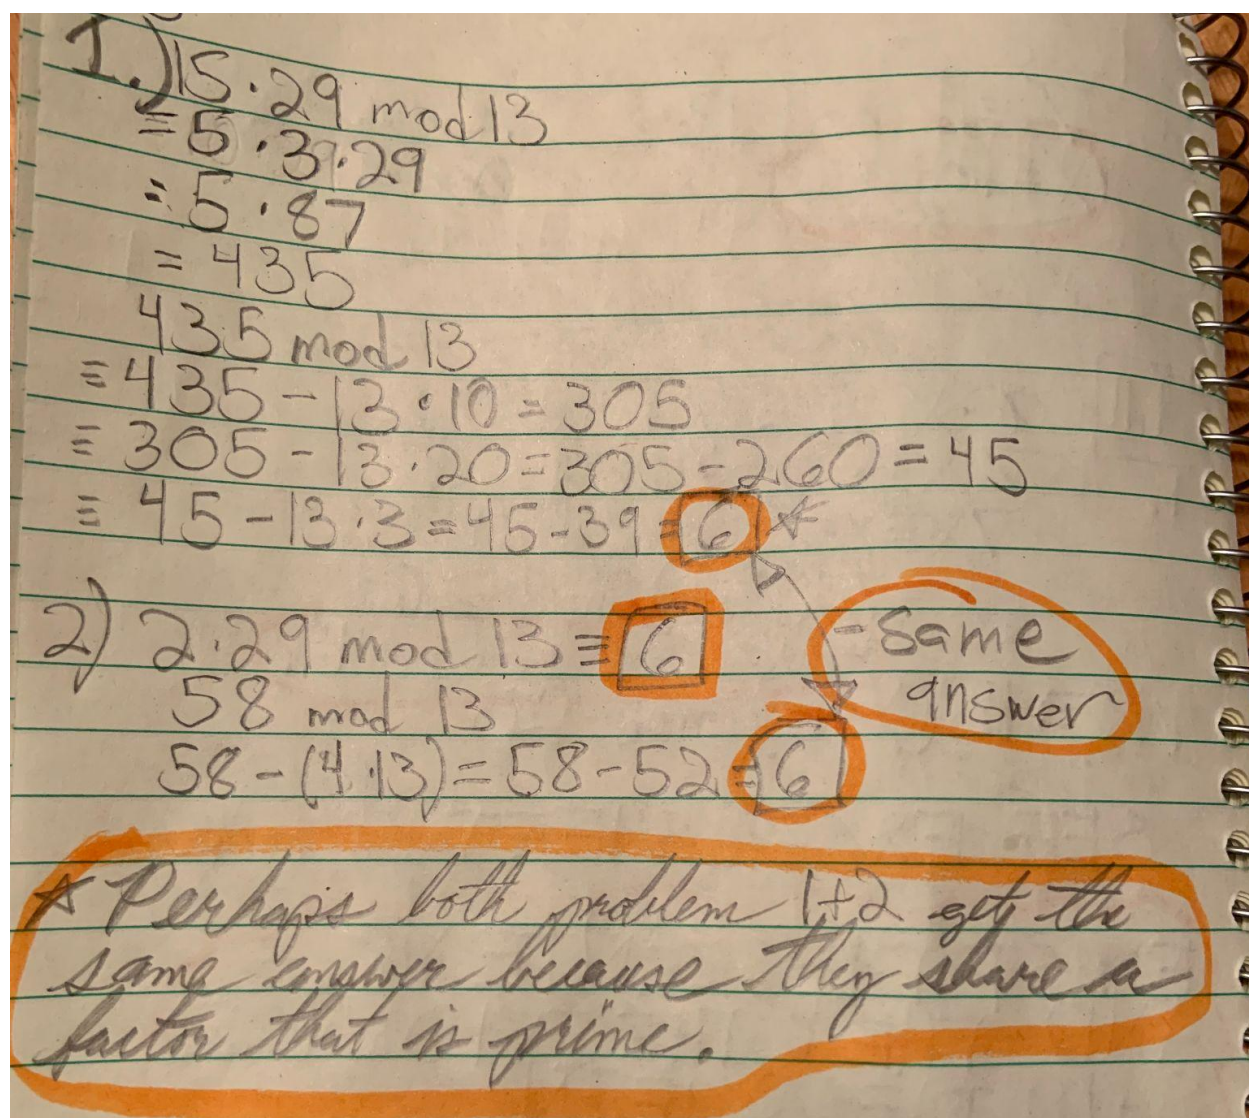 1.) 15 · 29 mod 13
= 5 · 3 · 29
= 5 · 87
= 435
435 mod 13
≡ 435 - 13 · 10 = 305
≡ 305 - 13 · 20 = 305 - 260 = 45
≡ 45 - 13 · 3 = 45 - 39 = 6 ☆
2) 2 · 29 mod 13 ≡ 6
- Same answer
58 mod 13
58 - (4 · 13) = 58 - 52 = 6
☆ Perhaps both problem 1+2 get the
same answer because they share a
factor that is prime.